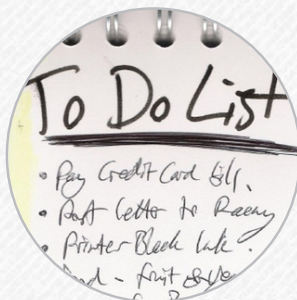 To Do List
• Pay Credit Card Bills.
• Post Letter to
• Printer Black Ink.
- fruit